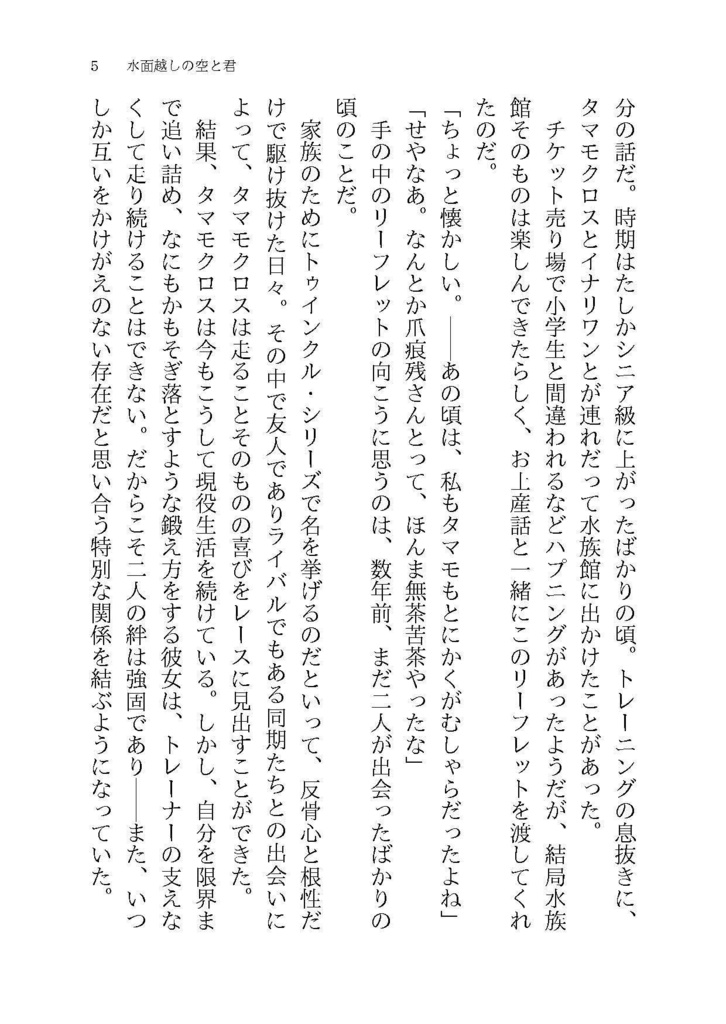 5　水面越しの空と君
分の話だ。時期はたしかシニア級に上がったばかりの頃。トレーニングの息抜きに、
タマモクロスとイナリワンとが連れだって水族館に出かけたことがあった。
　チケット売り場で小学生と間違われるなどハプニングがあったようだが、結局水族
館そのものは楽しんできたらしく、お土産話と一緒にこのリーフレットを渡してくれ
たのだ。
「ちょっと懐かしい。――あの頃は、私もタマモもとにかくがむしゃらだったよね」
「せやなあ。なんとか爪痕残さんとって、ほんま無茶苦茶やったな」
　手の中のリーフレットの向こうに思うのは、数年前、まだ二人が出会ったばかりの
頃のことだ。
　家族のためにトゥインクル・シリーズで名を挙げるのだといって、反骨心と根性だ
けで駆け抜けた日々。その中で友人でありライバルでもある同期たちとの出会いに
よって、タマモクロスは走ることそのものの喜びをレースに見出すことができた。
　結果、タマモクロスは今もこうして現役生活を続けている。しかし、自分を限界ま
で追い詰め、なにもかもそぎ落とすような鍛え方をする彼女は、トレーナーの支えな
くして走り続けることはできない。だからこそ二人の絆は強固であり――また、いつ
しか互いをかけがえのない存在だと思い合う特別な関係を結ぶようになっていた。